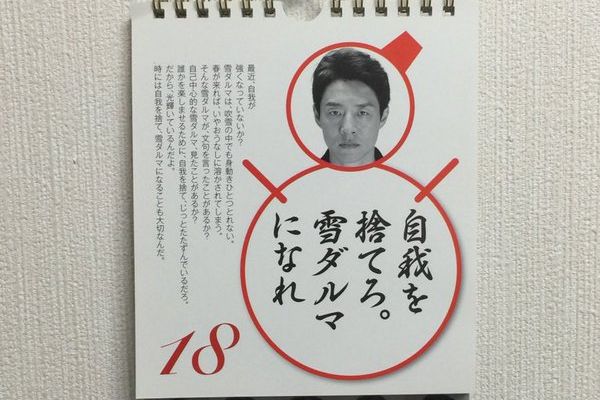 自我を
捨てろ。
雪ダルマ
になれ
最近、自我が
強くなっていないか?
雪ダルマは、吹雪の中でも身動きひとつとれない。
春が来れば、いやおうなしに溶かされてしまう。
そんな雪ダルマが、文句を言ったことがあるか?
自己中心的な雪ダルマ、見たことがあるか?
誰かを楽しませるために、自我を捨て、じっとたたずんでいるだろ。
だから、光輝いているんだよ。
時には自我を捨て、雪ダルマになることも大切なんだ。
18